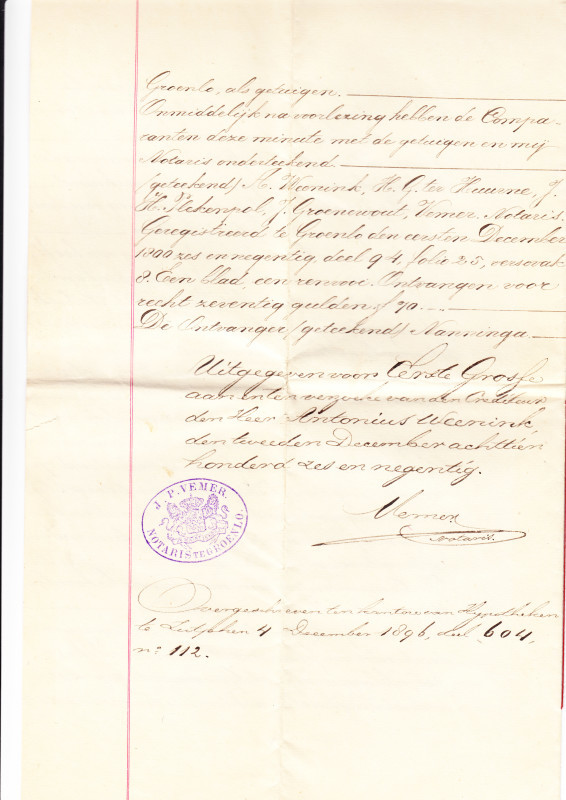 Groenlo, als getuigen.
Onmiddelijk na voorlezing hebben de Compa-
ranten deze minute met de getuigen en mij
Notaris onderteekend.
(geteekend) A. Weenink, H. G. ter Huurne, J.
H. Mekenpol, J. Groenewout, Vemer Notaris.
Geregistreerd te Groenlo den eersten December
1800 zes en negentig, deel 94 folio 25, verso vak
8. Een blad, een renvooi. Ontvangen voor
recht zeventig gulden f 70.
De Ontvanger (geteekend) Nanninga
Uitgegeven voor Eerste Grosse
aan en ten verzoeke van den Crediteur
den Heer Antonius Weenink,
den tweeden December achttien
honderd zes en negentig.
Vemer
notaris.
J. P. VEMER.
NOTARIS TE GROENLO.
Overgeschreven ten kantore van Hypotheken
te Zutphen 4 December 1896, deel 604,
no 112.